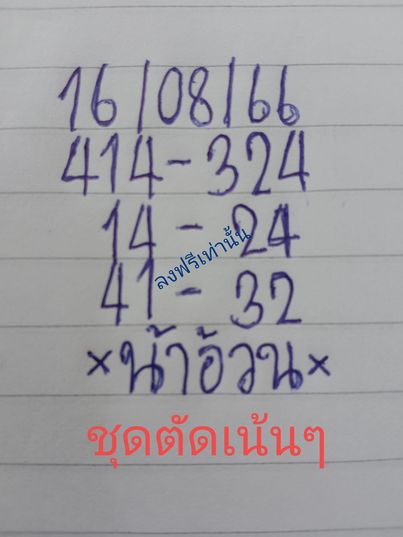 16/08/66
414-324
14-24
ลงฟรีเท่านั้น
41-32
×น้าอ้วน×
ชุดตัดเน้นๆ